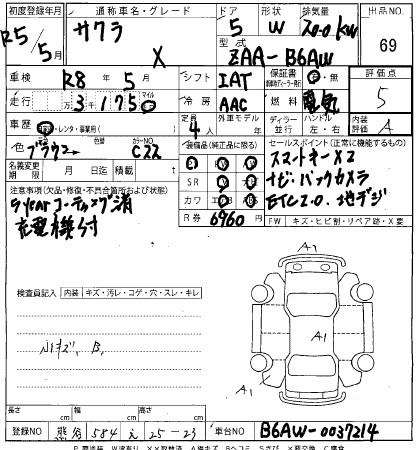 初度登録年月 通称車名・グレード ドア 形状 排気量 出品NO
R5/5月 サクラ X 5 W 69
型式 ZAA-B6AW
車検 R8年5月 シフト IAT 保証書 有・無 評価点 5
走行 31750 マイル km 冷房 AAC 燃料 電気
車歴 レンタ・事業用 定員 4人 外車モデル ディーラー 並行 ハンドル 左・右 内装 A
色 ブラウン 色替 カラーNO C22 装備品(純正品に限る) セールスポイント(正常に機能するもの)
名義変更期限 月 日迄 書類 スマートキーX2
SR ナビ・バックカメラ
注意事項(欠品・修復・不具合箇所および状態) カワ ETC2.0、地デジ
5yearコーティング済 R券 6960円 FW キズ・ヒビ割・リペア跡・X要
充電機付
検査員記入 内装 キズ・汚レ・コゲ・穴・スレ・キレ
小キズ、B、
A1
A1
A1
長さ cm 幅 cm 高さ cm
登録NO 熊谷 584 え 25-23 車台NO B6AW-0037214